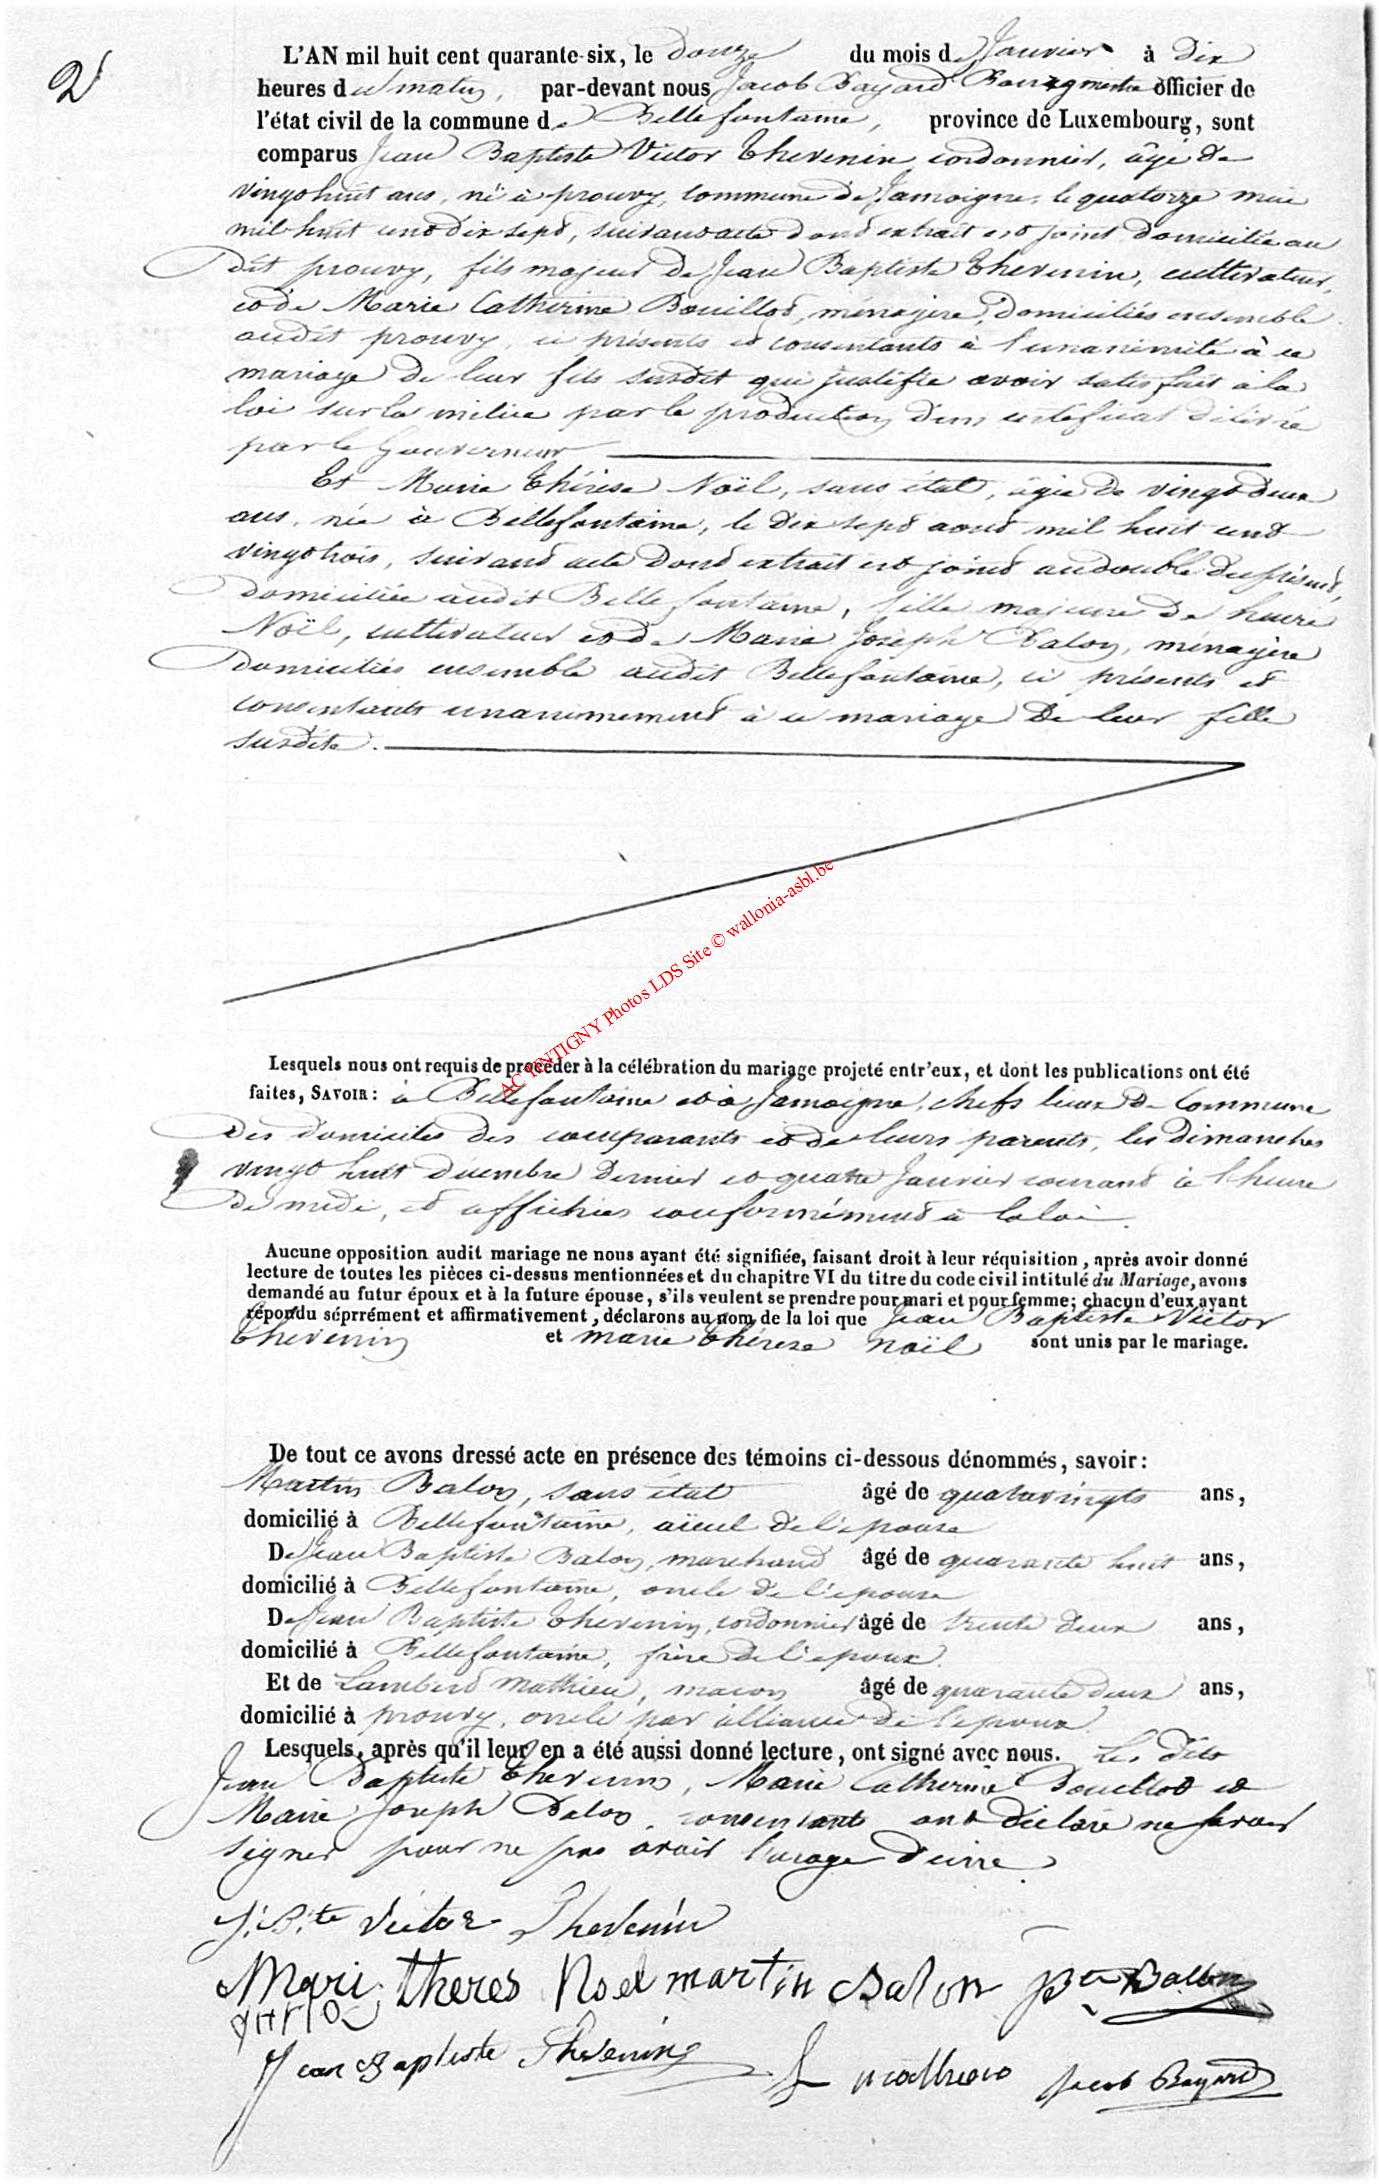 2
L'AN mil huit cent quarante-six, le douze du mois de Janvier à dix
heures du matin, par-devant nous Jacob Bayard Bourgmestre officier de
l'état civil de la commune de Bellefontaine, province de Luxembourg, sont
comparus Jean Baptiste Victor Thevenin, cordonnier, âgé de
vingt huit ans, né à prouvy, commune de Jamoigne, le quatorze mai
mil huit cent dix sept, suivant acte dont extrait est joint, domicilié au
dit prouvy, fils majeur de Jean Baptiste Thevenin, cultivateur,
et de Marie Catherine Bouillot, ménagère, domiciliés ensemble
audit prouvy, ici présents et consentants à l'unanimité à ce
mariage de leur fils susdit qui justifie avoir satisfait à la
loi sur la milice par la production d'un certificat délivré
par le Gouverneur
Et Marie Thérèse Noël, sans état, âgée de vingt deux
ans, née à Bellefontaine, le dix sept aout mil huit cent
vingt trois, suivant acte dont extrait est joint au double du présent,
domiciliée audit Bellefontaine, fille majeure de
Noël, cultivateur et de Marie Joseph Balon, ménagère
domiciliés ensemble audit Bellefontaine, ici présents et
consentants unanimement à ce mariage de leur fille
susdite.
AC TINTIGNY Photos LDS Site © wallonia-asbl.be
Lesquels nous ont requis de procéder à la célébration du mariage projeté entr'eux, et dont les publications ont été
faites, SAVOIR: à Bellefontaine et à Jamoigne, chefs lieux de Commune
des domiciles des comparants et de leurs parents, les dimanches
vingt huit décembre dernier et quatre Janvier courant à l'heure
de midi, et affichées conformément à la loi.
Aucune opposition audit mariage ne nous ayant été signifiée, faisant droit à leur réquisition, après avoir donné
lecture de toutes les pièces ci-dessus mentionnées et du chapitre VI du titre du code civil intitulé du Mariage, avons
demandé au futur époux et à la future épouse, s'ils veulent se prendre pour mari et pour femme; chacun d'eux ayant
répondu séprrément et affirmativement, déclarons au nom de la loi que Jean Baptiste Victor
Thevenin et marie Thérèse Noël sont unis par le mariage.
De tout ce avons dressé acte en présence des témoins ci-dessous dénommés, savoir:
Martin Balon, sans état âgé de quatrevingts ans,
domicilié à Bellefontaine, aïeul de l'épouse
De Jean Baptiste Balon, marchand âgé de quarante huit ans,
domicilié à Bellefontaine, oncle de l'épouse
De Jean Baptiste Thevenin, cordonnier âgé de trente deux ans,
domicilié à Bellefontaine, frère de l'époux.
Et de Lambert Mathieu, maçon âgé de quarante deux ans,
domicilié à prouvy, oncle par alliance de l'époux.
Lesquels, après qu'il leur en a été aussi donné lecture, ont signé avec nous. Les dits
Jean Baptiste Thevenin, Marie Catherine Bouillot et
Marie Joseph Balon, consentants ont déclaré ne savoir
signer pour ne pas avoir l'usage d'ecrire.
J. B.te Victor Thevenin
Mari theres Noel martin Balon J Bte Balon
Jean Baptiste Thevenin L mathieu Jacob Bayard